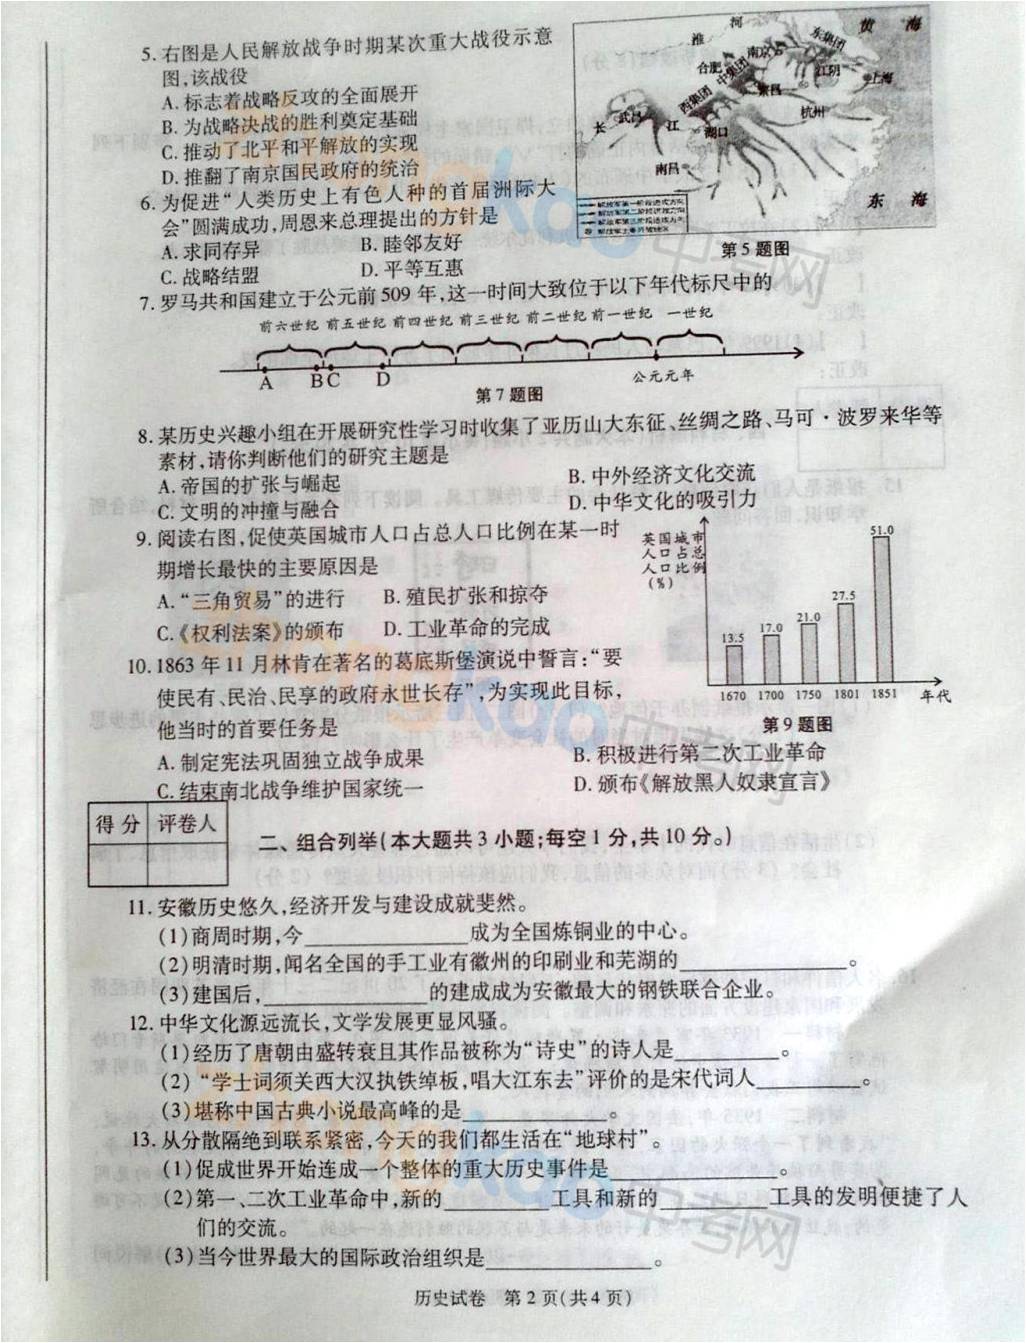 5. 右图是人民解放战争时期某次重大战役示意
图,该战役
A. 标志着战略反攻的全面展开
B. 为战略决战的胜利奠定基础
C. 推动了北平和平解放的实现
D. 推翻了南京国民政府的统治
淮 河 黄 海
东集团
南京
合肥
中集团
江阴
上海
西集团
繁昌
杭州
长 武昌 江 湖口
南昌
东 海
第5题图
6. 为促进“人类历史上有色人种的首届洲际大
会”圆满成功,周恩来总理提出的方针是
A. 求同存异 B. 睦邻友好
C. 战略结盟 D. 平等互惠
7. 罗马共和国建立于公元前509年,这一时间大致位于以下年代标尺中的
前六世纪 前五世纪 前四世纪 前三世纪 前二世纪 前一世纪 一世纪
A B C D 公元元年
第7题图
8. 某历史兴趣小组在开展研究性学习时收集了亚历山大东征、丝绸之路、马可·波罗来华等
素材,请你判断他们的研究主题是
A. 帝国的扩张与崛起 B. 中外经济文化交流
C. 文明的冲撞与融合 D. 中华文化的吸引力
9. 阅读右图,促使英国城市人口占总人口比例在某一时
期增长最快的主要原因是
A. “三角贸易”的进行 B. 殖民扩张和掠夺
C.《权利法案》的颁布 D. 工业革命的完成
英国城市
人口占总
人口比例
(%)
13.5 17.0 21.0 27.5 51.0
1670 1700 1750 1801 1851 年代
第9题图
10. 1863年11月林肯在著名的葛底斯堡演说中誓言:“要
使民有、民治、民享的政府永世长存”,为实现此目标,
他当时的首要任务是
A. 制定宪法巩固独立战争成果 B. 积极进行第二次工业革命
C. 结束南北战争维护国家统一 D. 颁布《解放黑人奴隶宣言》
得分 评卷人
二、组合列举(本大题共3小题;每空1分,共10分。)
11. 安徽历史悠久,经济开发与建设成就斐然。
(1)商周时期,今____________成为全国炼铜业的中心。
(2)明清时期,闻名全国的手工业有徽州的印刷业和芜湖的____________。
(3)建国后,____________的建成成为安徽最大的钢铁联合企业。
12. 中华文化源远流长,文学发展更显风骚。
(1)经历了唐朝由盛转衰且其作品被称为“诗史”的诗人是________。
(2)“学士词须关西大汉执铁绰板,唱大江东去”评价的是宋代词人________。
(3)堪称中国古典小说最高峰的是__________。
13. 从分散隔绝到联系紧密,今天的我们都生活在“地球村”。
(1)促成世界开始连成一个整体的重大历史事件是____________。
(2)第一、二次工业革命中,新的________工具和新的________工具的发明便捷了人
们的交流。
(3)当今世界最大的国际政治组织是____________。
历史试卷 第2页(共4页)